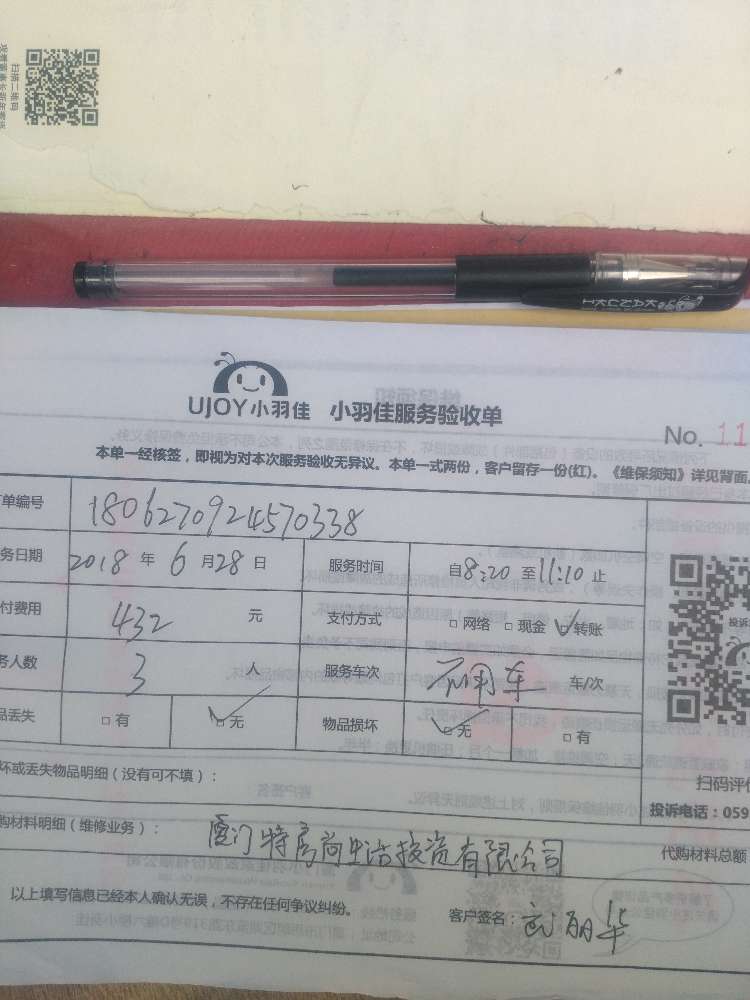 扫描二维码
UJOY小羽佳 小羽佳服务验收单
No. 11
本单一经核签，即视为对本次服务验收无异议。本单一式两份，客户留存一份(红)。《维保须知》详见背面。
单编号 1806270924570338
务日期 2018 年 6 月 28 日 服务时间 自8:20 至11:10 止
付费用 432 元 支付方式 □ 网络 □ 现金 ☑ 转账
务人数 3 人 服务车次 不用车 车/次
品丢失 □ 有 ☑ 无 物品损坏 ☑ 无 □ 有
坏或丢失物品明细（没有可不填）： 扫码评价
投诉电话：059
购材料明细（维修业务）： 厦门特房尚生活投资有限公司 代购材料总额
以上填写信息已经本人确认无误，不存在任何争议纠纷。 客户签名：丽华